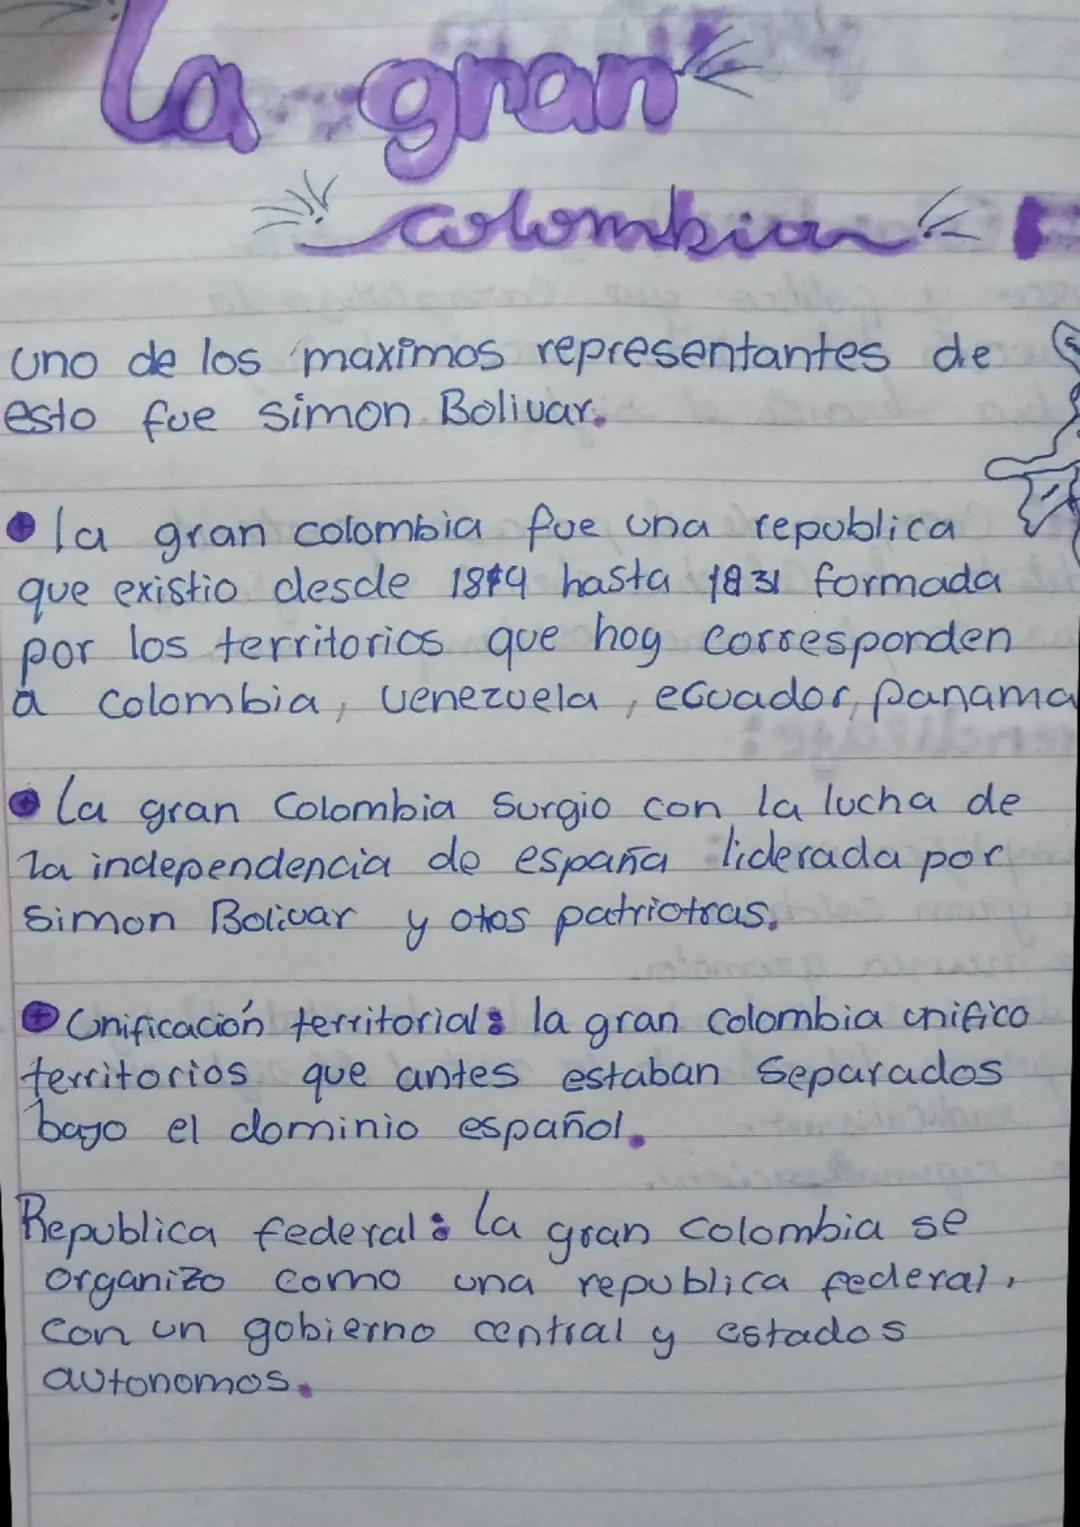 La gran
colombia
uno de los maximos representantes de
esto fue simon Bolivar.
la gran colombia fue una republica
que existio desde 1819 hasta 1831 formada
por los territorios que hoy corresponden
a colombia, venezuela, ecuador, panama
La gran Colombia surgio con la lucha de
la independencia de españa liderada por
simon Bolivar y otos patriotras.
Unificación territorial: la gran colombia unifico
territorios que antes estaban separados
bajo el dominio español.
Republica federal: la gran colombia se
organizo como una republica federal,
con un gobierno central y estados
autonomos.